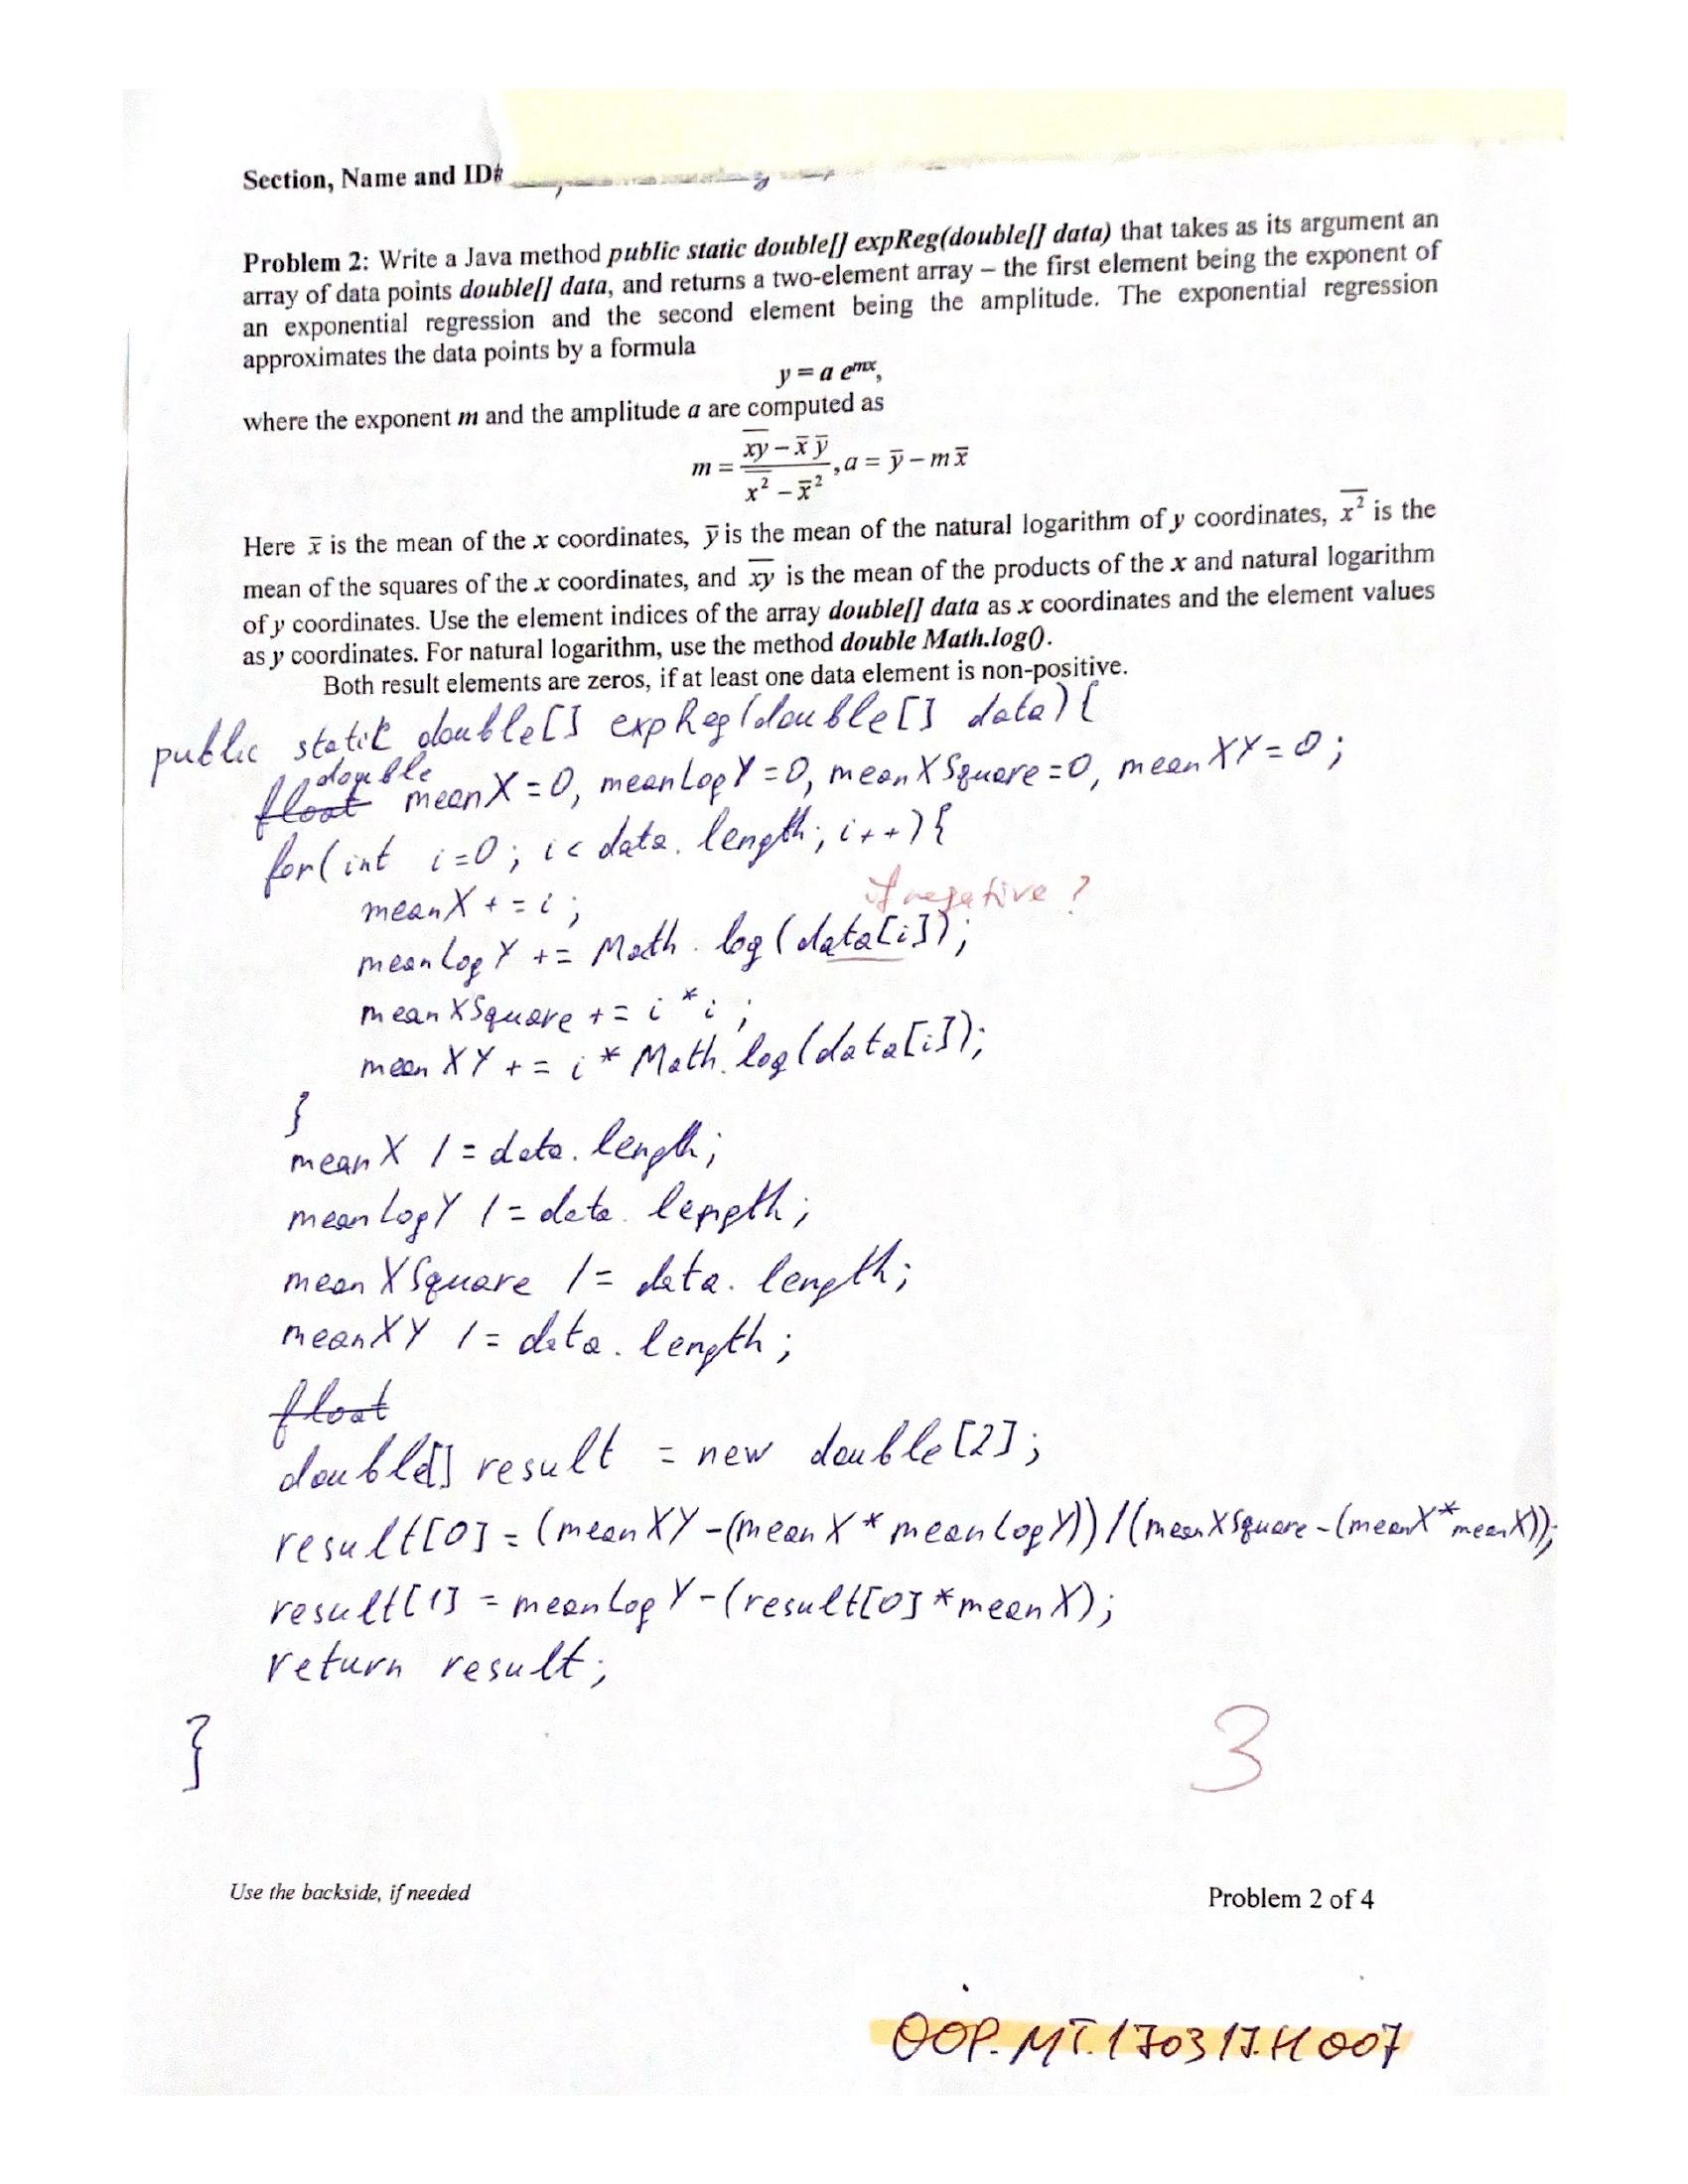 Section, Name and ID#
Problem 2: Write a Java method public static double[] expReg(double[] data) that takes as its argument an
array of data points double[] data, and returns a two-element array – the first element being the exponent of
an exponential regression and the second element being the amplitude. The exponential regression
approximates the data points by a formula
y = a e^{mx},
where the exponent m and the amplitude a are computed as
m = \frac{\overline{xy} - \bar{x}\,\bar{y}}{\overline{x^2} - \bar{x}^2}, a = \bar{y} - m\bar{x}
Here x̄ is the mean of the x coordinates, ȳ is the mean of the natural logarithm of y coordinates, \overline{x^2} is the
mean of the squares of the x coordinates, and \overline{xy} is the mean of the products of the x and natural logarithm
of y coordinates. Use the element indices of the array double[] data as x coordinates and the element values
as y coordinates. For natural logarithm, use the method double Math.log().
Both result elements are zeros, if at least one data element is non-positive.
public static double[] expReg(double[] data){
double
float meanX = 0, meanLogY = 0, meanXSquare = 0, meanXY = 0;
for(int i=0; i< data.length; i++){
meanX += i;
if negative?
meanLogY += Math.log(data[i]);
meanXSquare += i*i;
meanXY += i * Math.log(data[i]);
}
meanX /= data.length;
meanLogY /= data.length;
meanXSquare /= data.length;
meanXY /= data.length;
float
double[] result = new double[2];
result[0] = (meanXY-(meanX*meanLogY))/(meanXSquare-(meanX*meanX));
result[1] = meanLogY-(result[0]*meanX);
return result;
}
3
Use the backside, if needed
Problem 2 of 4
OOP.MT.170317.H007